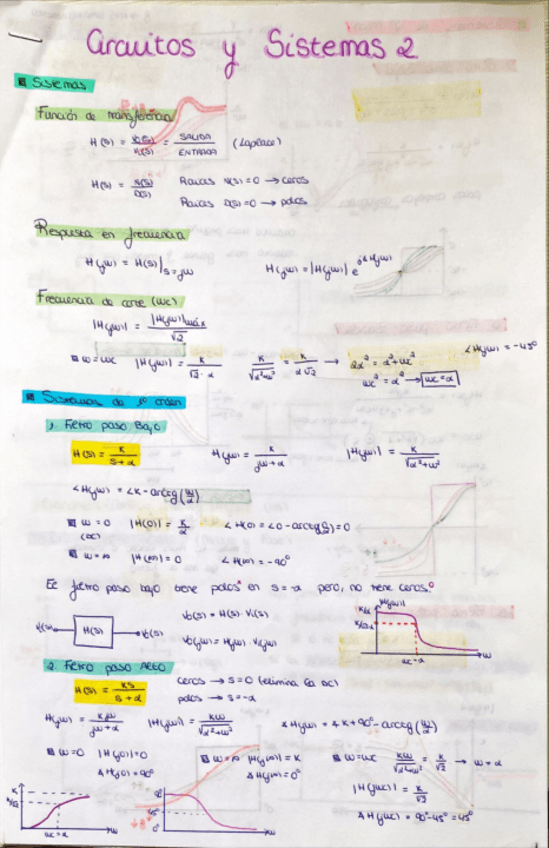 Circuitos y Sistemas 2
Sistemas
Función de transferencia
H(s) = Vo(s)/Vi(s) = SALIDA/ENTRADA (Laplace)
H(s) = N(s)/D(s) Raíces N(s)=0 → ceros
Raíces D(s)=0 → polos
Respuesta en frecuencia
H(jω) = H(s)|s=jω H(jω) = |H(jω)| e^j∠H(jω)
Frecuencia de corte (ωc)
|H(jω)| = |H(jω)|máx/√2
ω=ωc |H(jω)| = K/(√2·α) K/√(α²+ω²) = K/(α√2) → 2α² = α²+ωc² ∠H(jω) = -45°
ωc² = α² → ωc=α
Sistemas de 1º orden
1. Filtro paso Bajo
H(s) = K/(s+α) H(jω) = K/(jω+α) |H(jω)| = K/√(α²+ω²)
∠H(jω) = ∠K - arctg(ω/α)
ω=0 |H(0)| = K/α ∠H(0) = ∠0 - arctg(0/α) = 0
(DC)
ω=∞ |H(∞)| = 0 ∠H(∞) = -90°
El filtro paso bajo tiene polos× en s=-α pero, no tiene ceros.°
Vi(s) H(s) Vo(s) Vo(s) = H(s)·Vi(s)
Vo(jω) = H(jω)·Vi(jω)
|H(jω)|
K/α
ωc=α ω
2. Filtro paso Alto
H(s) = Ks/(s+α) ceros → s=0 (elimina la DC)
polos → s=-α
H(jω) = Kjω/(jω+α) |H(jω)| = Kω/√(α²+ω²) ∠H(jω) = ∠K+90°-arctg(ω/α)
ω=0 |H(j0)|=0 ω=∞ |H(j∞)|=K ω=ωc Kω/√(α²+ω²) = K/√2 → ω=α
∠H(j0)=90° ∠H(j∞)=0°
|H(jωc)| = K/√2
∠H(jωc) = 90°-45°=45°
K
K/√2
ωc=α ω
90°
45°
0° ω